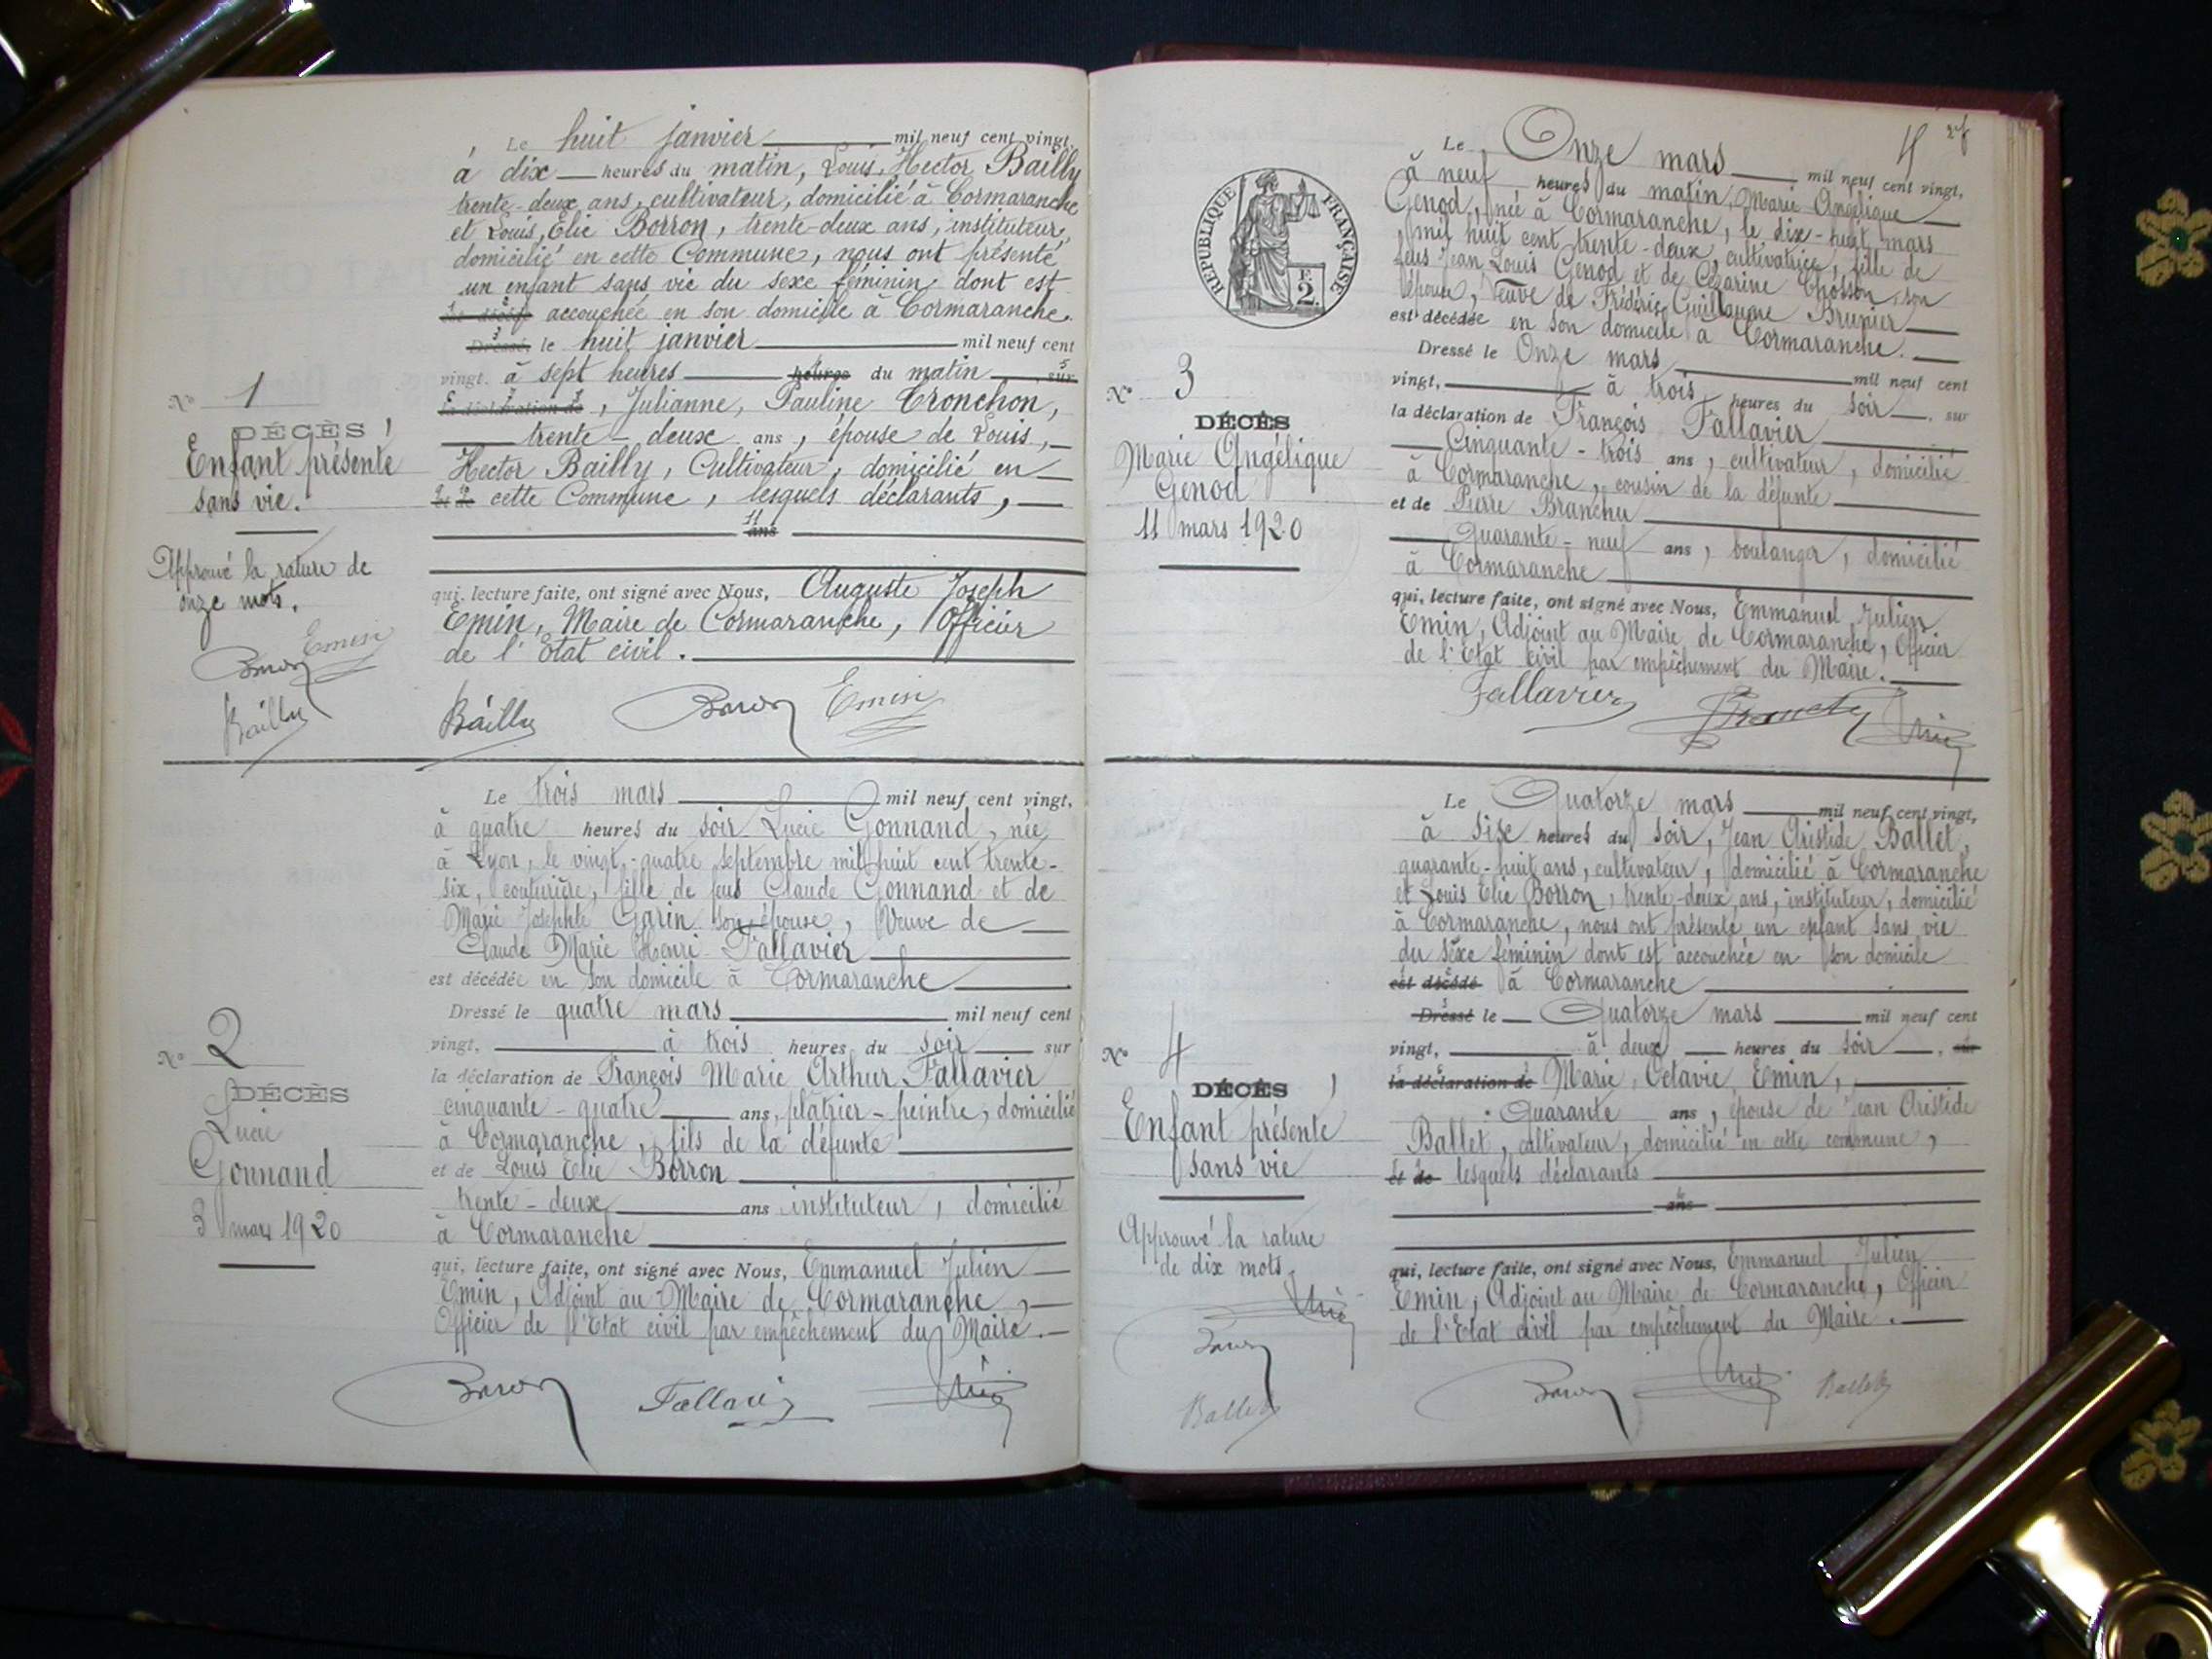 Le huit janvier mil neuf cent vingt,
à dix heures du matin, Louis, Hector Bailly
trente-deux ans, cultivateur, domicilié à Cormaranche
et Louis, Elie Borron, trente-deux ans, instituteur,
domicilié en cette Commune, nous ont présenté
un enfant sans vie du sexe féminin dont est
accouchée en son domicile à Cormaranche.
Dressé le huit janvier mil neuf cent
vingt. à sept heures heures du matin, sur
la déclaration de, Julianne, Pauline Cronchon,
trente-deux ans, épouse de Louis,
Hector Bailly, Cultivateur, domicilié en
et de cette Commune, lesquels déclarants,
ans
qui, lecture faite, ont signé avec Nous, Auguste Joseph
Emin, Maire de Cormaranche, Officier
de l'Etat civil.
Bailly Borron Emin
N° 1
DÉCÈS
Enfant présenté
sans vie.
Approuvé la rature de
onze mots.
Emin
Borron
Bailly
Le trois mars mil neuf cent vingt,
à quatre heures du soir Lucie Gonnand, née
à Lyon, le vingt-quatre septembre mil huit cent trente-
six, couturière, fille de feus Claude Gonnand et de
Marie Josephte Garin son épouse, Veuve de
Claude Marie Henri Fallavier
est décédée en son domicile à Cormaranche
Dressé le quatre mars mil neuf cent
vingt, à trois heures du soir sur
la déclaration de François Marie Arthur Fallavier
cinquante-quatre ans, plâtrier-peintre, domicilié
à Cormaranche, fils de la défunte
et de Louis Elie Borron
trente-deux ans instituteur, domicilié
à Cormaranche
qui, lecture faite, ont signé avec Nous, Emmanuel Julien
Emin, Adjoint au Maire de Cormaranche,
Officier de l'Etat civil par empêchement du Maire.
Borron Fallavier Emin
N° 2
DÉCÈS
Lucie
Gonnand
3 mars 1920
RÉPUBLIQUE FRANÇAISE
2 F.
Le Onze mars mil neuf cent vingt,
à neuf heures du matin, Marie Angélique
Genod, née à Cormaranche, le dix-huit mars
mil huit cent trente-deux, cultivatrice, fille de
feus Jean Louis Genod et de Césarine Chosson, son
épouse, Veuve de Frédéric Guillaume Brunier
est décédée en son domicile à Cormaranche.
Dressé le Onze mars mil neuf cent
vingt, à trois heures du soir, sur
la déclaration de François Fallavier
Cinquante-trois ans, cultivateur, domicilié
à Cormaranche, cousin de la défunte
et de Pierre Branchu
Quarante-neuf ans, boulanger, domicilié
à Cormaranche
qui, lecture faite, ont signé avec Nous, Emmanuel Julien
Emin, Adjoint au Maire de Cormaranche, Officier
de l'Etat civil par empêchement du Maire.
Fallavier Branchu Emin
N° 3
DÉCÈS
Marie Angélique
Genod
11 mars 1920
Le Quatorze mars mil neuf cent vingt,
à six heures du soir, Jean Aristide Ballet,
quarante-huit ans, cultivateur, domicilié à Cormaranche
et Louis Elie Borron, trente-deux ans, instituteur, domicilié
à Cormaranche, nous ont présenté un enfant sans vie
du sexe féminin dont est accouchée en son domicile
est décédé à Cormaranche
Dressé le Quatorze mars mil neuf cent
vingt, à deux heures du soir, sur
la déclaration de Marie, Octavie, Emin,
Quarante ans, épouse de Jean Aristide
Ballet, cultivateur, domicilié en cette commune,
et de lesquels déclarants
ans
qui, lecture faite, ont signé avec Nous, Emmanuel Julien
Emin, Adjoint au Maire de Cormaranche, Officier
de l'Etat civil par empêchement du Maire.
Borron Emin Ballet
N° 4
DÉCÈS
Enfant présenté
sans vie
Approuvé la rature
de dix mots.
Emin
Borron
Ballet